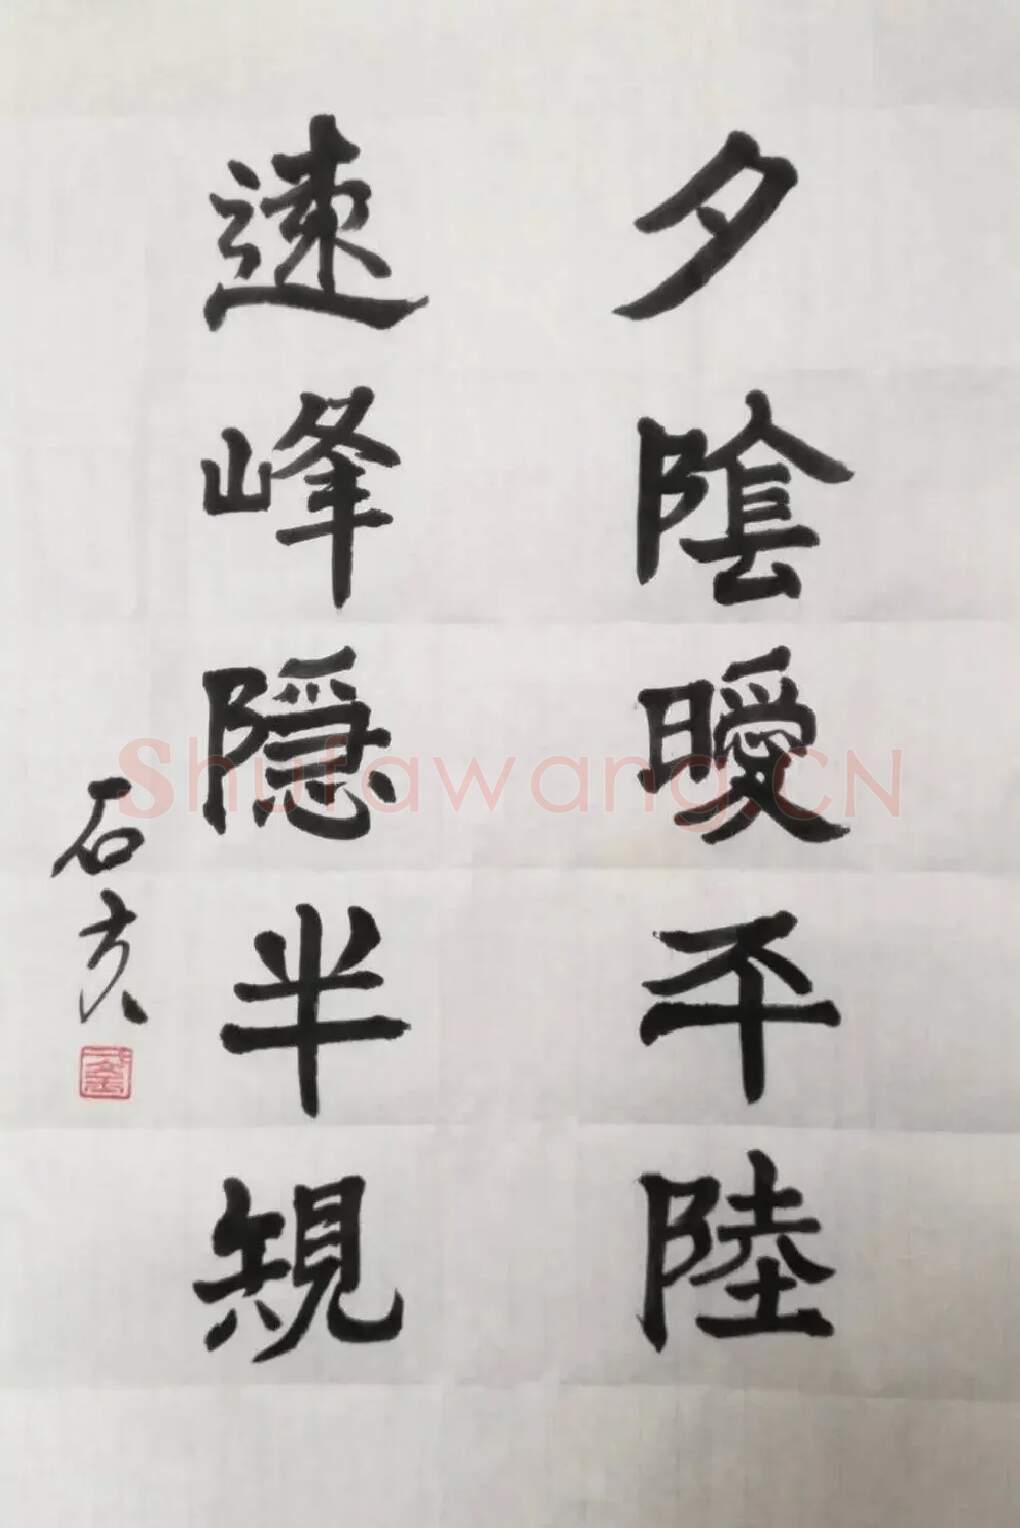 夕陰曖平陸
遠峰隱半規
石亥
Shufawang.CN